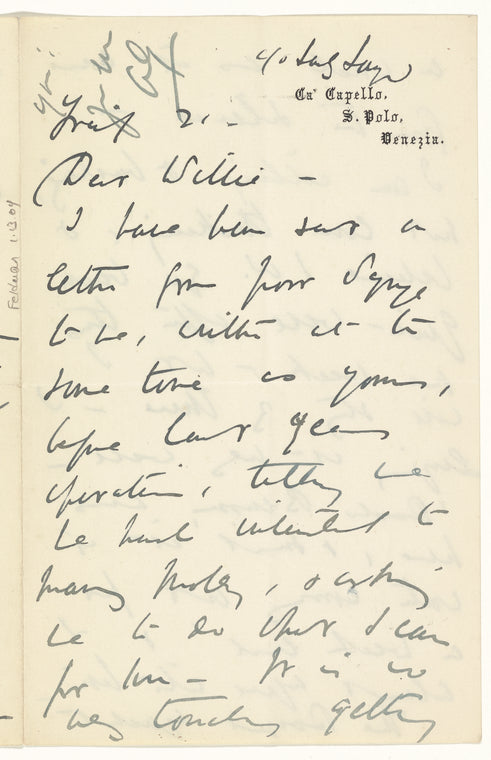 c/o Lady Layard
Ca' Capello.
S. Polo.
Venezia.
21 -
Dear Willie -
I have been sent a
letter from poor Synge
to me, written at the
same time as yours,
before last year's
operation, telling me
he had intended to
marry Molly, & asking
me to do what I can
for her - It is so
very touching getting
Feldman 1-13-04